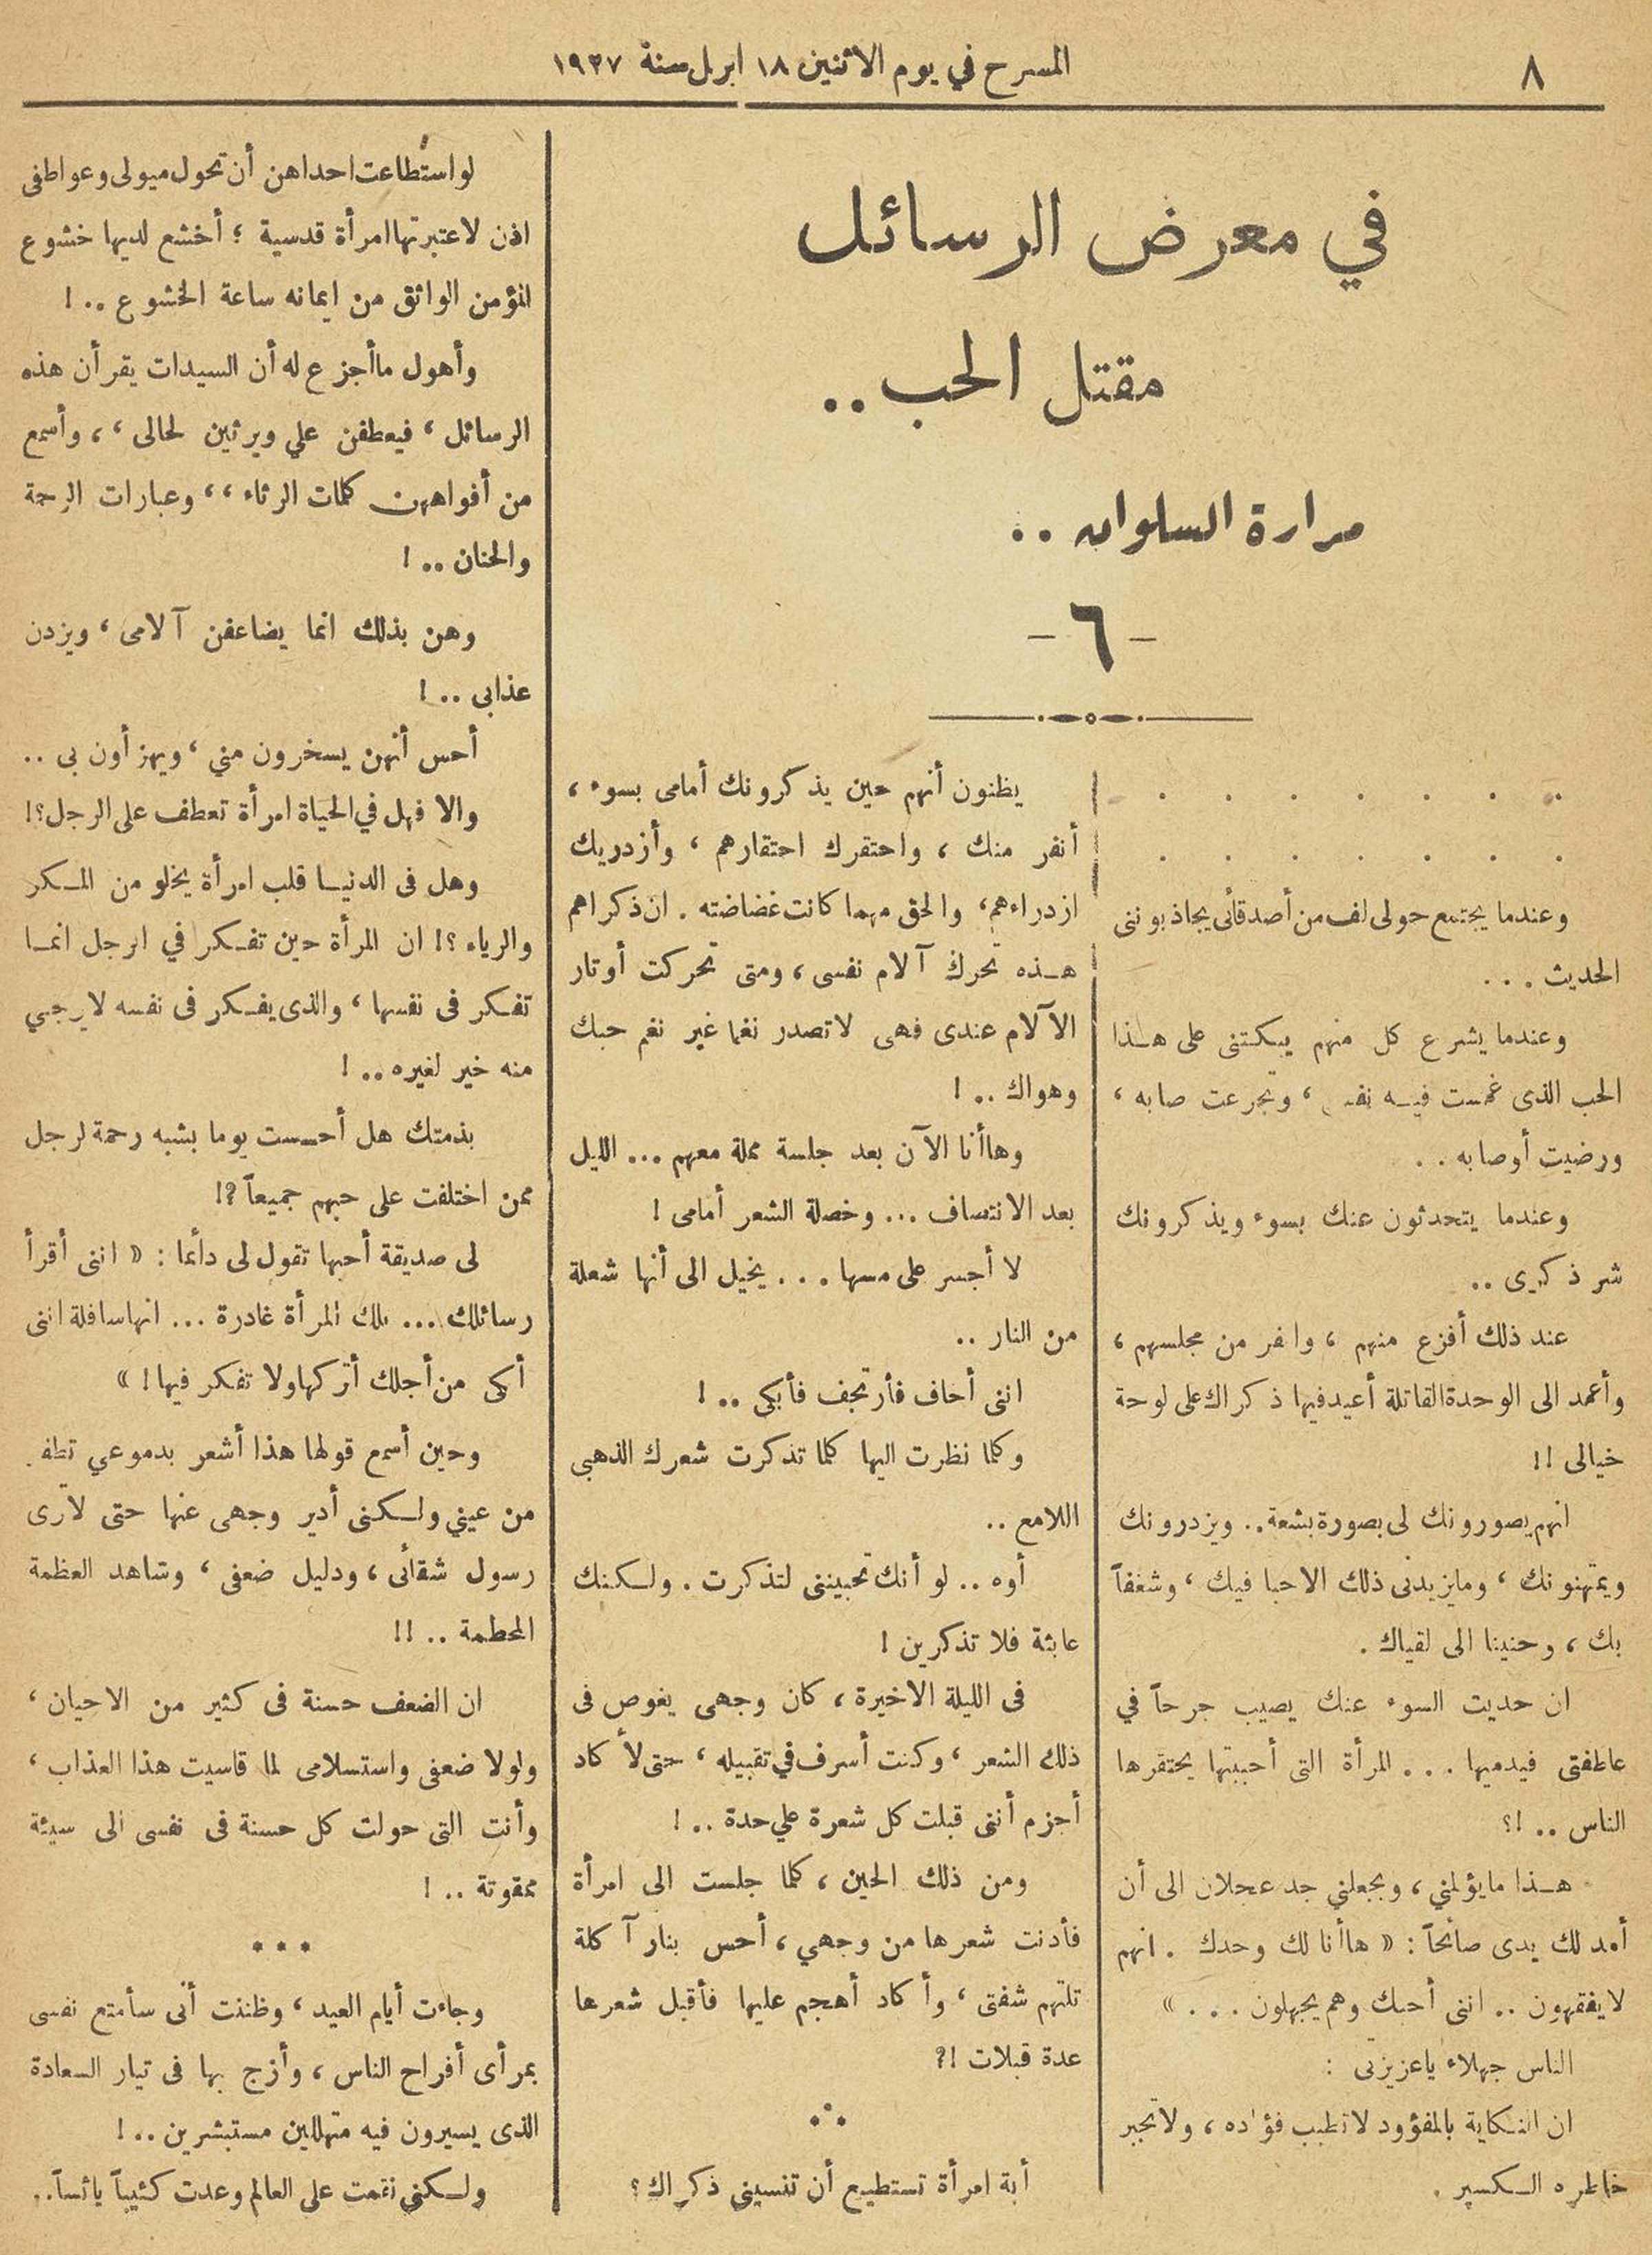 ٨
المسرح في يوم الاثنين ١٨ ابريل سنة ١٩٢٧
في معرض الرسائل
مقتل الحب ..
مرارة السلوان ..
- ٦ -
. . . . . . .
. . . . . . .
وعندما يجتمع حولى لف من أصدقائى يجاذبوننى
الحديث . . .
وعندما يشرع كل منهم يبكتنى على هذا
الحب الذى غمست فيه ، وتجرعت صابه ،
ورضيت أوصابه . .
وعندما يتحدثون عنك بسوء ويذكرونك
شر ذكرى ..
عند ذلك أفزع منهم ، وافر من مجلسهم ،
وأعمد الى الوحدة القاتلة أعيد فيها ذكراك على لوحة
خيالى !!
انهم يصورونك لى بصورة بشعة .. ويزدرونك
ويمتهنونك ، وما يزيدنى ذلك الا حبا فيك ، وشغفاً
بك ، وحنينا الى لقياك .
ان حديت السوء عنك يصيب جرحاً في
عاطفتى فيدميها . . . المرأة التى أحببتها يحتقرها
الناس .. !؟
هذا ما يؤلمني ، ويجعلني جد عجلان الى أن
أمد لك يدى صائحاً : « هاأنا لك وحدك . انهم
لا يفقهون .. اننى أحبك وهم يجهلون . . . »
الناس جهلاء ياعزيزتى :
ان النكاية بالمفؤود لا تطبب فؤاده ، ولا تجبر
خاطره الكسير .
يظنون أنهم حين يذكرونك أمامى بسوء ،
أنفر منك ، واحتقرك احتقارهم ، وأزدريك
ازدراءهم ، والحق مهما كانت غضاضته . ان ذكراهم
هذه تحرك آلام نفسى ، ومتى تحركت أوتار
الآلام عندى فهى لا تصدر نغما غير نغم حبك
وهواك .. !
وهاأنا الآن بعد جلسة مملة معهم ... الليل
بعد الانتصاف ... وخصلة الشعر أمامى !
لا أجسر على مسها . . . يخيل الى أنها شعلة
من النار ..
اننى أخاف فأرتجف فأبكى .. !
وكلما نظرت اليها كلما تذكرت شعرك الذهبى
اللامع ..
أوه .. لو أنك تحبيننى لتذكرت . ولكنك
عابثة فلا تذكرين !
فى الليلة الاخيرة ، كان وجهى يغوص فى
ذلك الشعر ، وكنت أسرف في تقبيله ، حتى لأ كاد
أجزم أننى قبلت كل شعرة علي حدة .. !
ومن ذلك الحين ، كلما جلست الى امرأة
فأدنت شعرها من وجهي ، أحس بنار آكلة
تلتهم شفتى ، وأكاد أهجم عليها فأقبل شعرها
عدة قبلات !؟
***
أية امرأة تستطيع أن تنسينى ذكراك ؟
لو استطاعت احداهن أن تحول ميولى وعواطفى
اذن لاعتبرتها امرأة قدسية ؛ أخشع لديها خشوع
المؤمن الواثق من ايمانه ساعة الخشوع .. !
وأهول ماأجزع له أن السيدات يقرأن هذه
الرسائل ، فيعطفن علي ويرثين لحالى ، ، وأسمع
من أفواههن كلمات الرثاء ، ، وعبارات الرحمة
والحنان .. !
وهن بذلك انما يضاعفن آلامى ، ويزدن
عذابى .. !
أحس أنهن يسخرون مني ، ويهزأون بى ..
والا فهل في الحياة امرأة تعطف على الرجل ؟!
وهل فى الدنيا قلب امرأة يخلو من المكر
والرياء ؟! ان المرأة حين تفكر في الرجل انما
تفكر فى نفسها ، والذى يفكر فى نفسه لا يرجي
منه خير لغيره .. !
بذمتك هل أحسست يوما بشبه رحمة لرجل
ممن اختلفت على حبهم جميعاً ؟!
لى صديقة أحبها تقول لى دائما : « اننى أقرأ
رسائلك ... تلك المرأة غادرة ... انها سافلة اننى
أبكى من أجلك أتركها ولا تفكر فيها ! »
وحين أسمع قولها هذا أشعر بدموعي
من عيني ولكنى أدير وجهى عنها حتى لاترى
رسول شقائى ، ودليل ضعفى ، وشاهد العظمة
المحطمة .. !!
ان الضعف حسنة فى كثير من الاحيان ،
ولولا ضعفى واستسلامى لما قاسيت هذا العذاب ،
وأنت التى حولت كل حسنة فى نفسى الى سيئة
ممقوتة .. !
* * *
وجاءت أيام العيد ، وظننت أنى سأمتع نفسى
بمرأى أفراح الناس ، وأزج بها فى تيار السعادة
الذى يسيرون فيه متهللين مستبشرين .. !
ولكني نقمت على العالم وعدت كئيباً يائساً ..